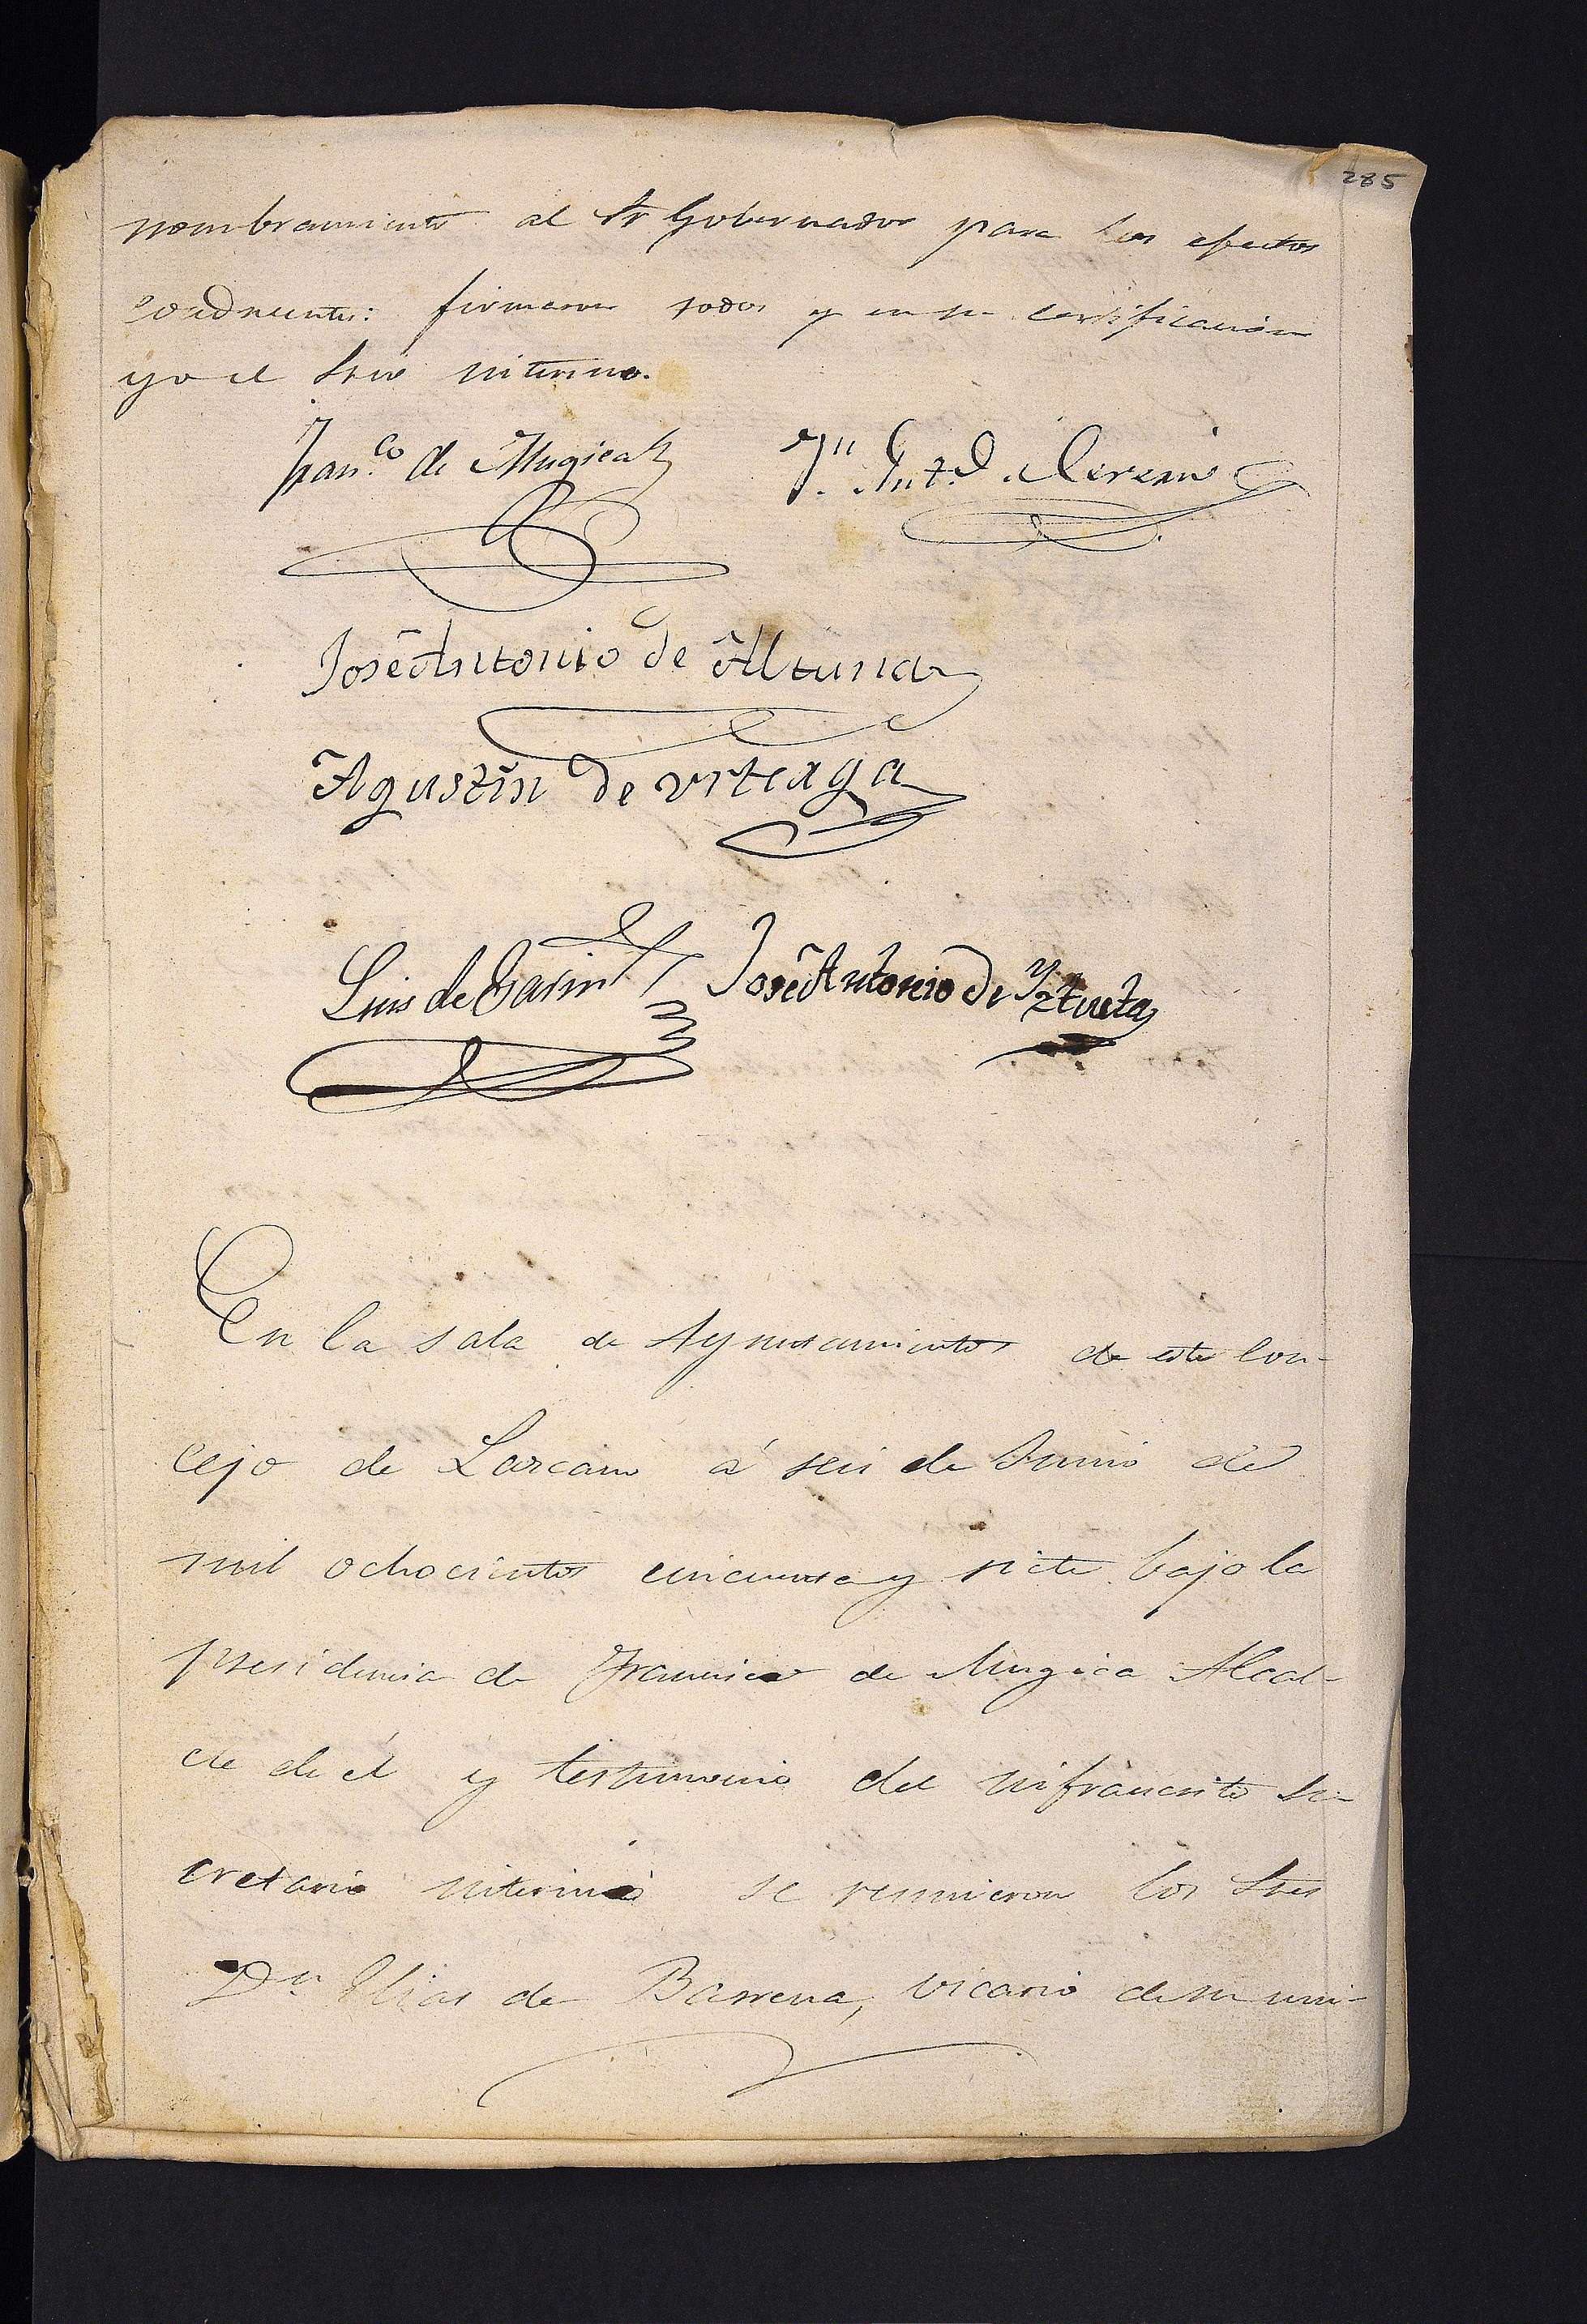 285
nombramiento al Sr Gobernador para los efectos
conducentes: firmaron todos y en su certificación
yo el Srio interino.
Fran.co de Mugica
Jn. Ant.o
José Antonio de Altuna
Agustin de Urteaga
Luis de Garin
José Antonio de Yztueta
En la sala de Ayuntamiento de este Con-
cejo de Lazcano á seis de Junio de
mil ochocientos cincuenta y siete bajo la
presidencia de Francisco de Mugica Alcal-
de de él y testimonio del infrascrito Se-
cretario interino se reunieron los Sres
Dn Elias de Barrena, vicario de su uni-